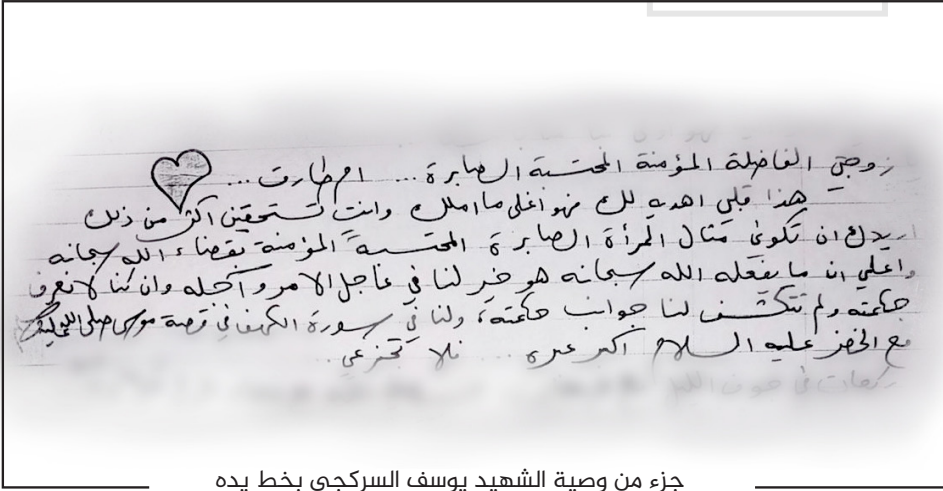 زوجتي الفاضلة المؤمنة المحتسبة الصابرة ... ام طارق ...
هذا قلبي اهديه لك فهو اغلى ما املك وانتِ تستحقين اكثر من ذلك
اريدك ان تكوني مثال المرأة الصابرة المحتسبة المؤمنة بقضاء الله سبحانه
واعلمي ان ما يفعله الله سبحانه هو خير لنا في عاجل الامر وآجله وان كنا لا نعرف
حكمته ولم تتكشف لنا جوانب حكمته، ولنا في سورة الكهف في قصة موسى صلى الله عليه
مع الخضر عليه السلام اكبر عبرة ... فلا تجزعي .
ركعات في جوف الليل
جزء من وصية الشهيد يوسف السركجي بخط يده